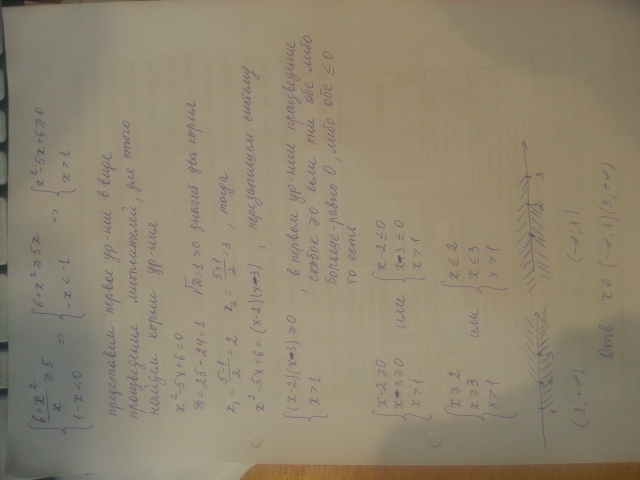 {(6+x²)/x ≥ 5 => {6+x² ≥ 5x => {x²-5x+6 ≥ 0
{1-x<0 {-x<-1 {x>1
представим первое ур-ние в виде
произведение множителей, для этого
найдём корни ур-ния
x²-5x+6=0
D=25-24=1 √D=1>0 значит два корня
x₁=(5-1)/2=2 x₂=(5+1)/2=3, тогда
x²-5x+6=(x-2)(x-3), перезапишем систему
{(x-2)(x-3) ≥ 0, в первом ур-нии произведение
{x>1 скобок ≥0 если они обе либо
больше-равно 0, либо обе ≤ 0
то есть
{x-2≥0 или {x-2≤0
{x-3≥0 {x-3≤0
{x>1 {x>1
{x≥2 или {x≤2
{x≥3 {x≤3
{x>1 {x>1
1 2 3 2 3
(3;+∞) (-∞,1)
Отв x∈(-∞,1)(3;+∞)